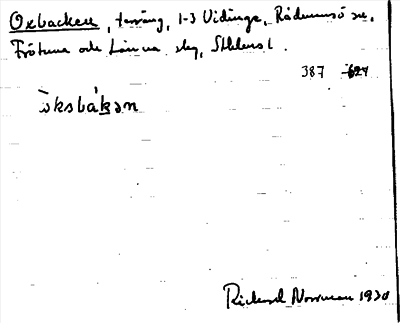 Oxbacken, terräng, 1-3 Vidinge, Rådmansö sn,
Frötuna och Länna slg, Sthlms l.
387 624
ò̀ksbákən
Rickard Norrman 1930